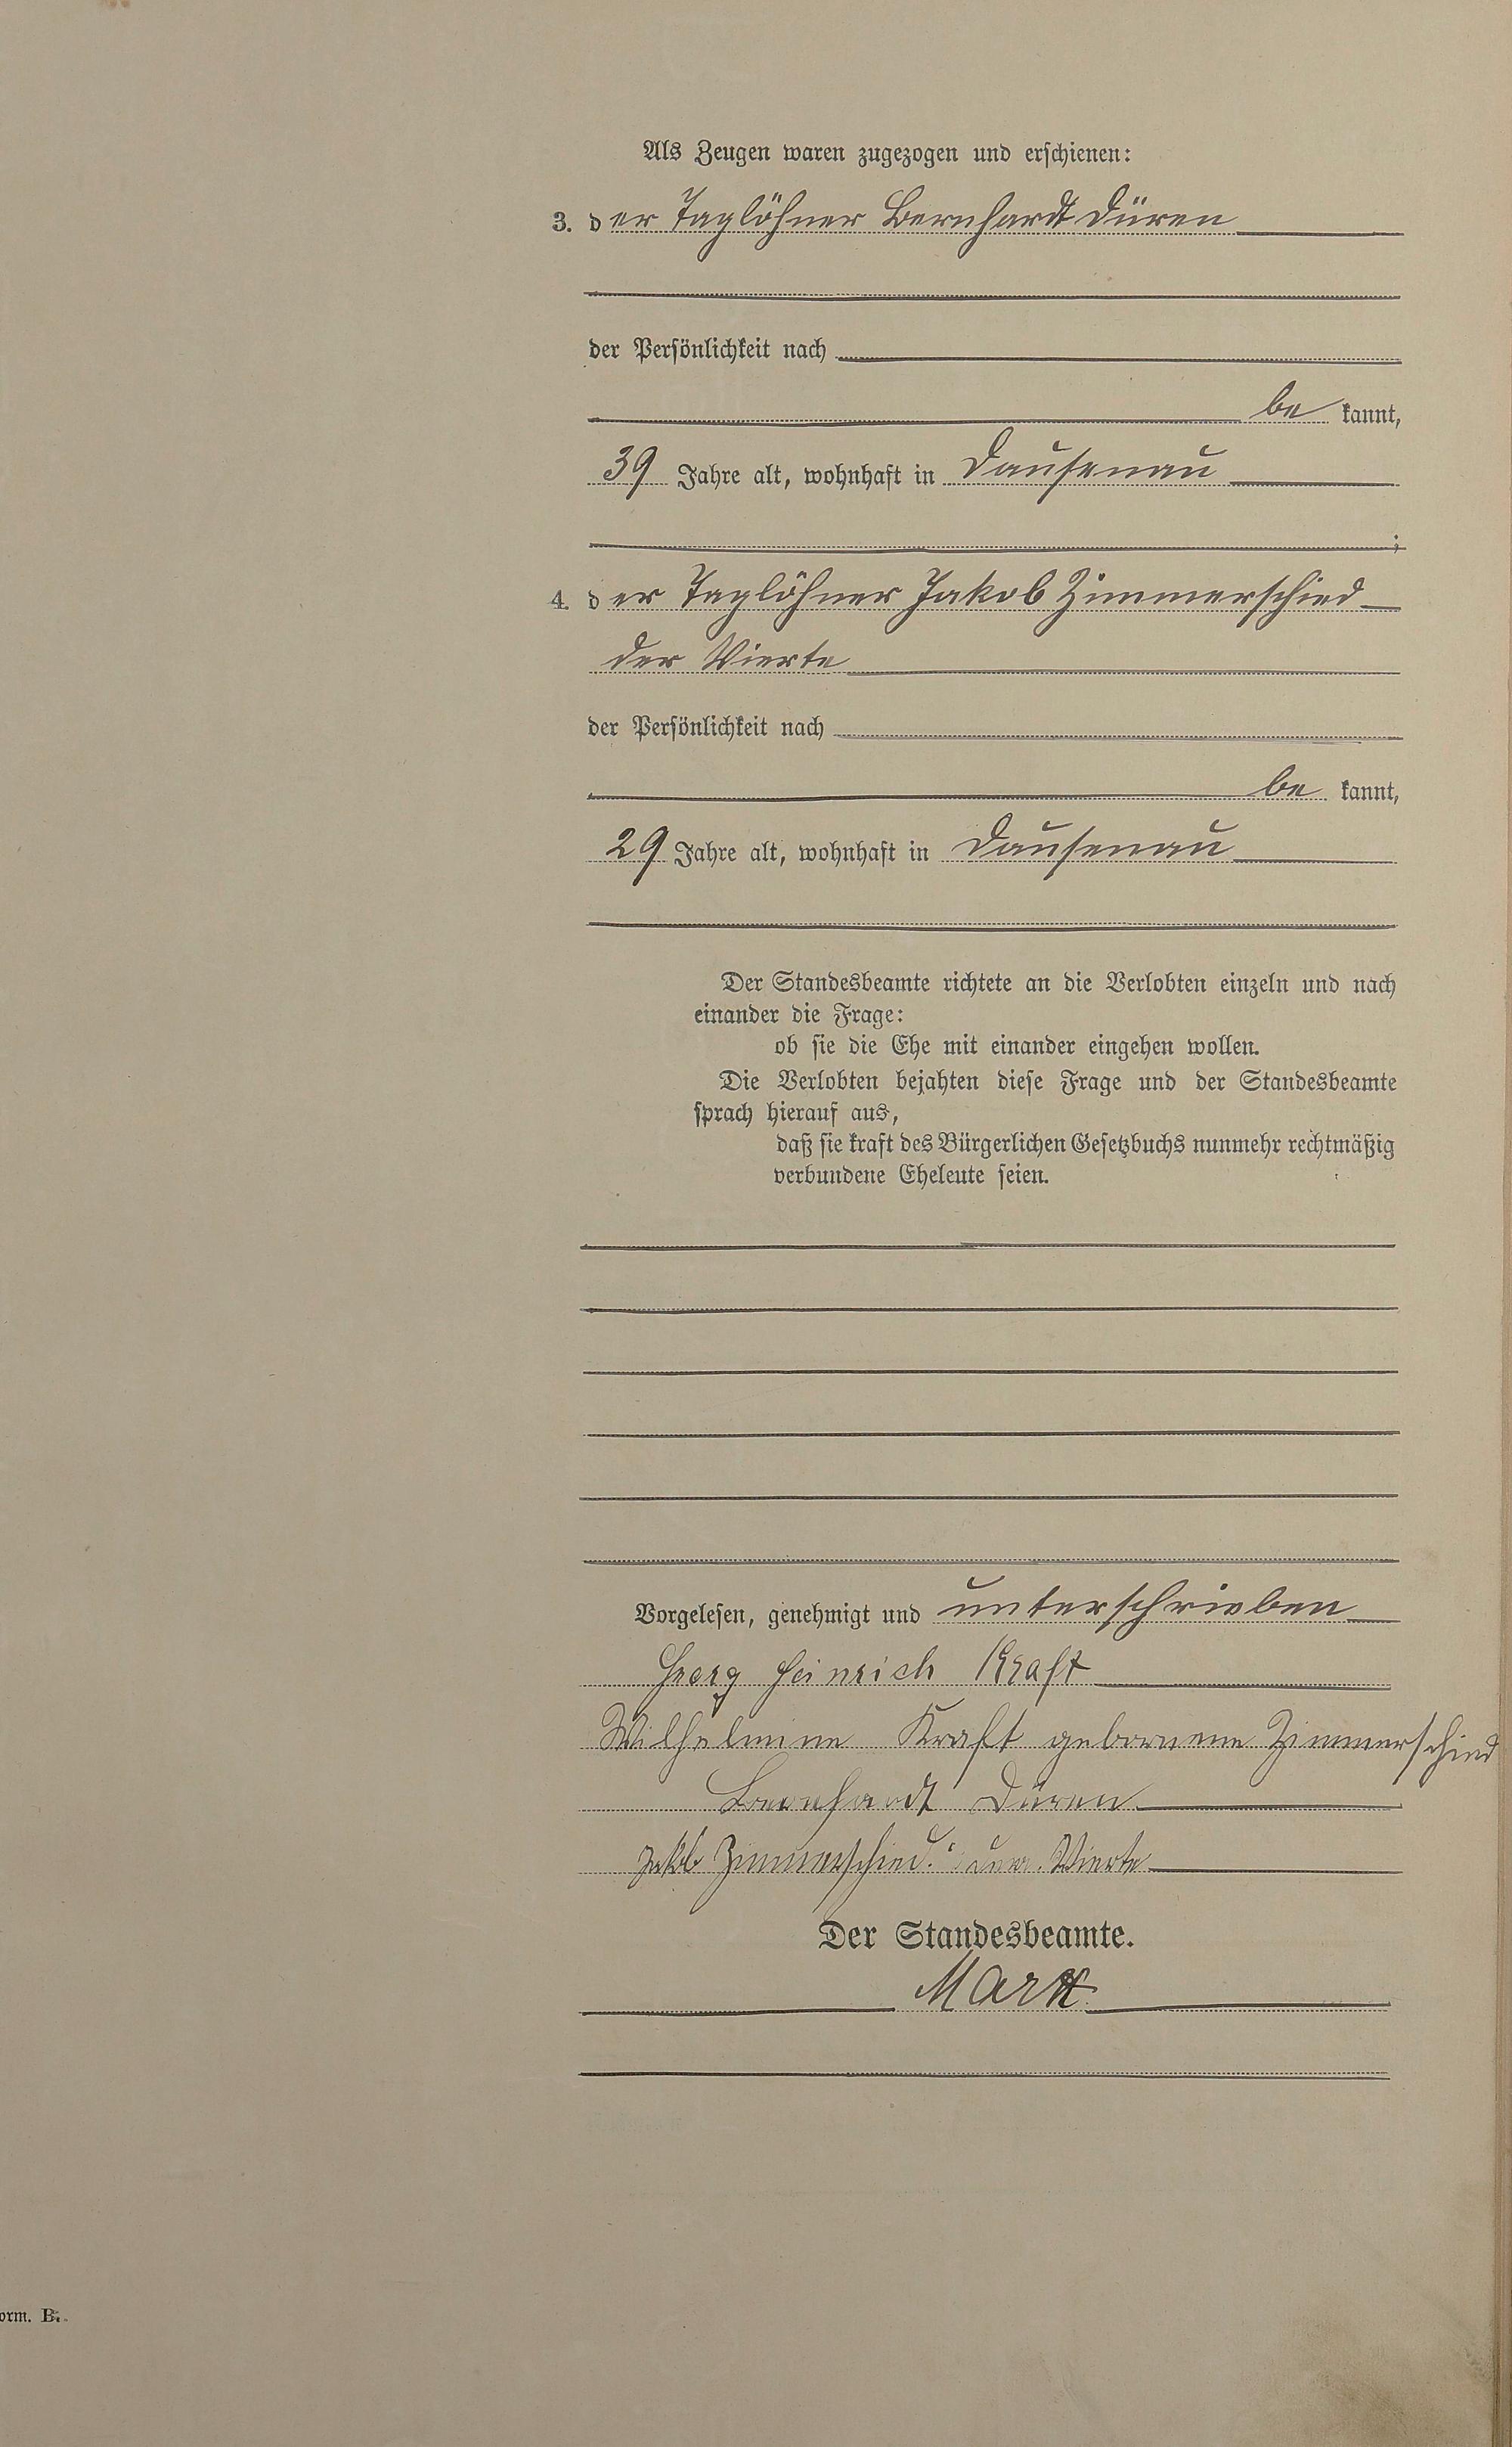 Als Zeugen waren zugezogen und erschienen:
3. der Taglöhner Bernhardt Düren
der Persönlichkeit nach
be kannt,
39 Jahre alt, wohnhaft in Dausenau
;
4. der Taglöhner Jakob Zimmerschied
der Vierte
der Persönlichkeit nach
be kannt,
29 Jahre alt, wohnhaft in Dausenau
Der Standesbeamte richtete an die Verlobten einzeln und nach
einander die Frage:
ob sie die Ehe mit einander eingehen wollen.
Die Verlobten bejahten diese Frage und der Standesbeamte
sprach hierauf aus,
daß sie kraft des Bürgerlichen Gesetzbuchs nunmehr rechtmäßig
verbundene Eheleute seien.
Vorgelesen, genehmigt und unterschrieben
Georg Heinrich Kraft
Wilhelmine Kraft gebornene Zimmerschied
Bernhardt Düren
Jakob Zimmerschied Vierte
Der Standesbeamte.
orm. B.